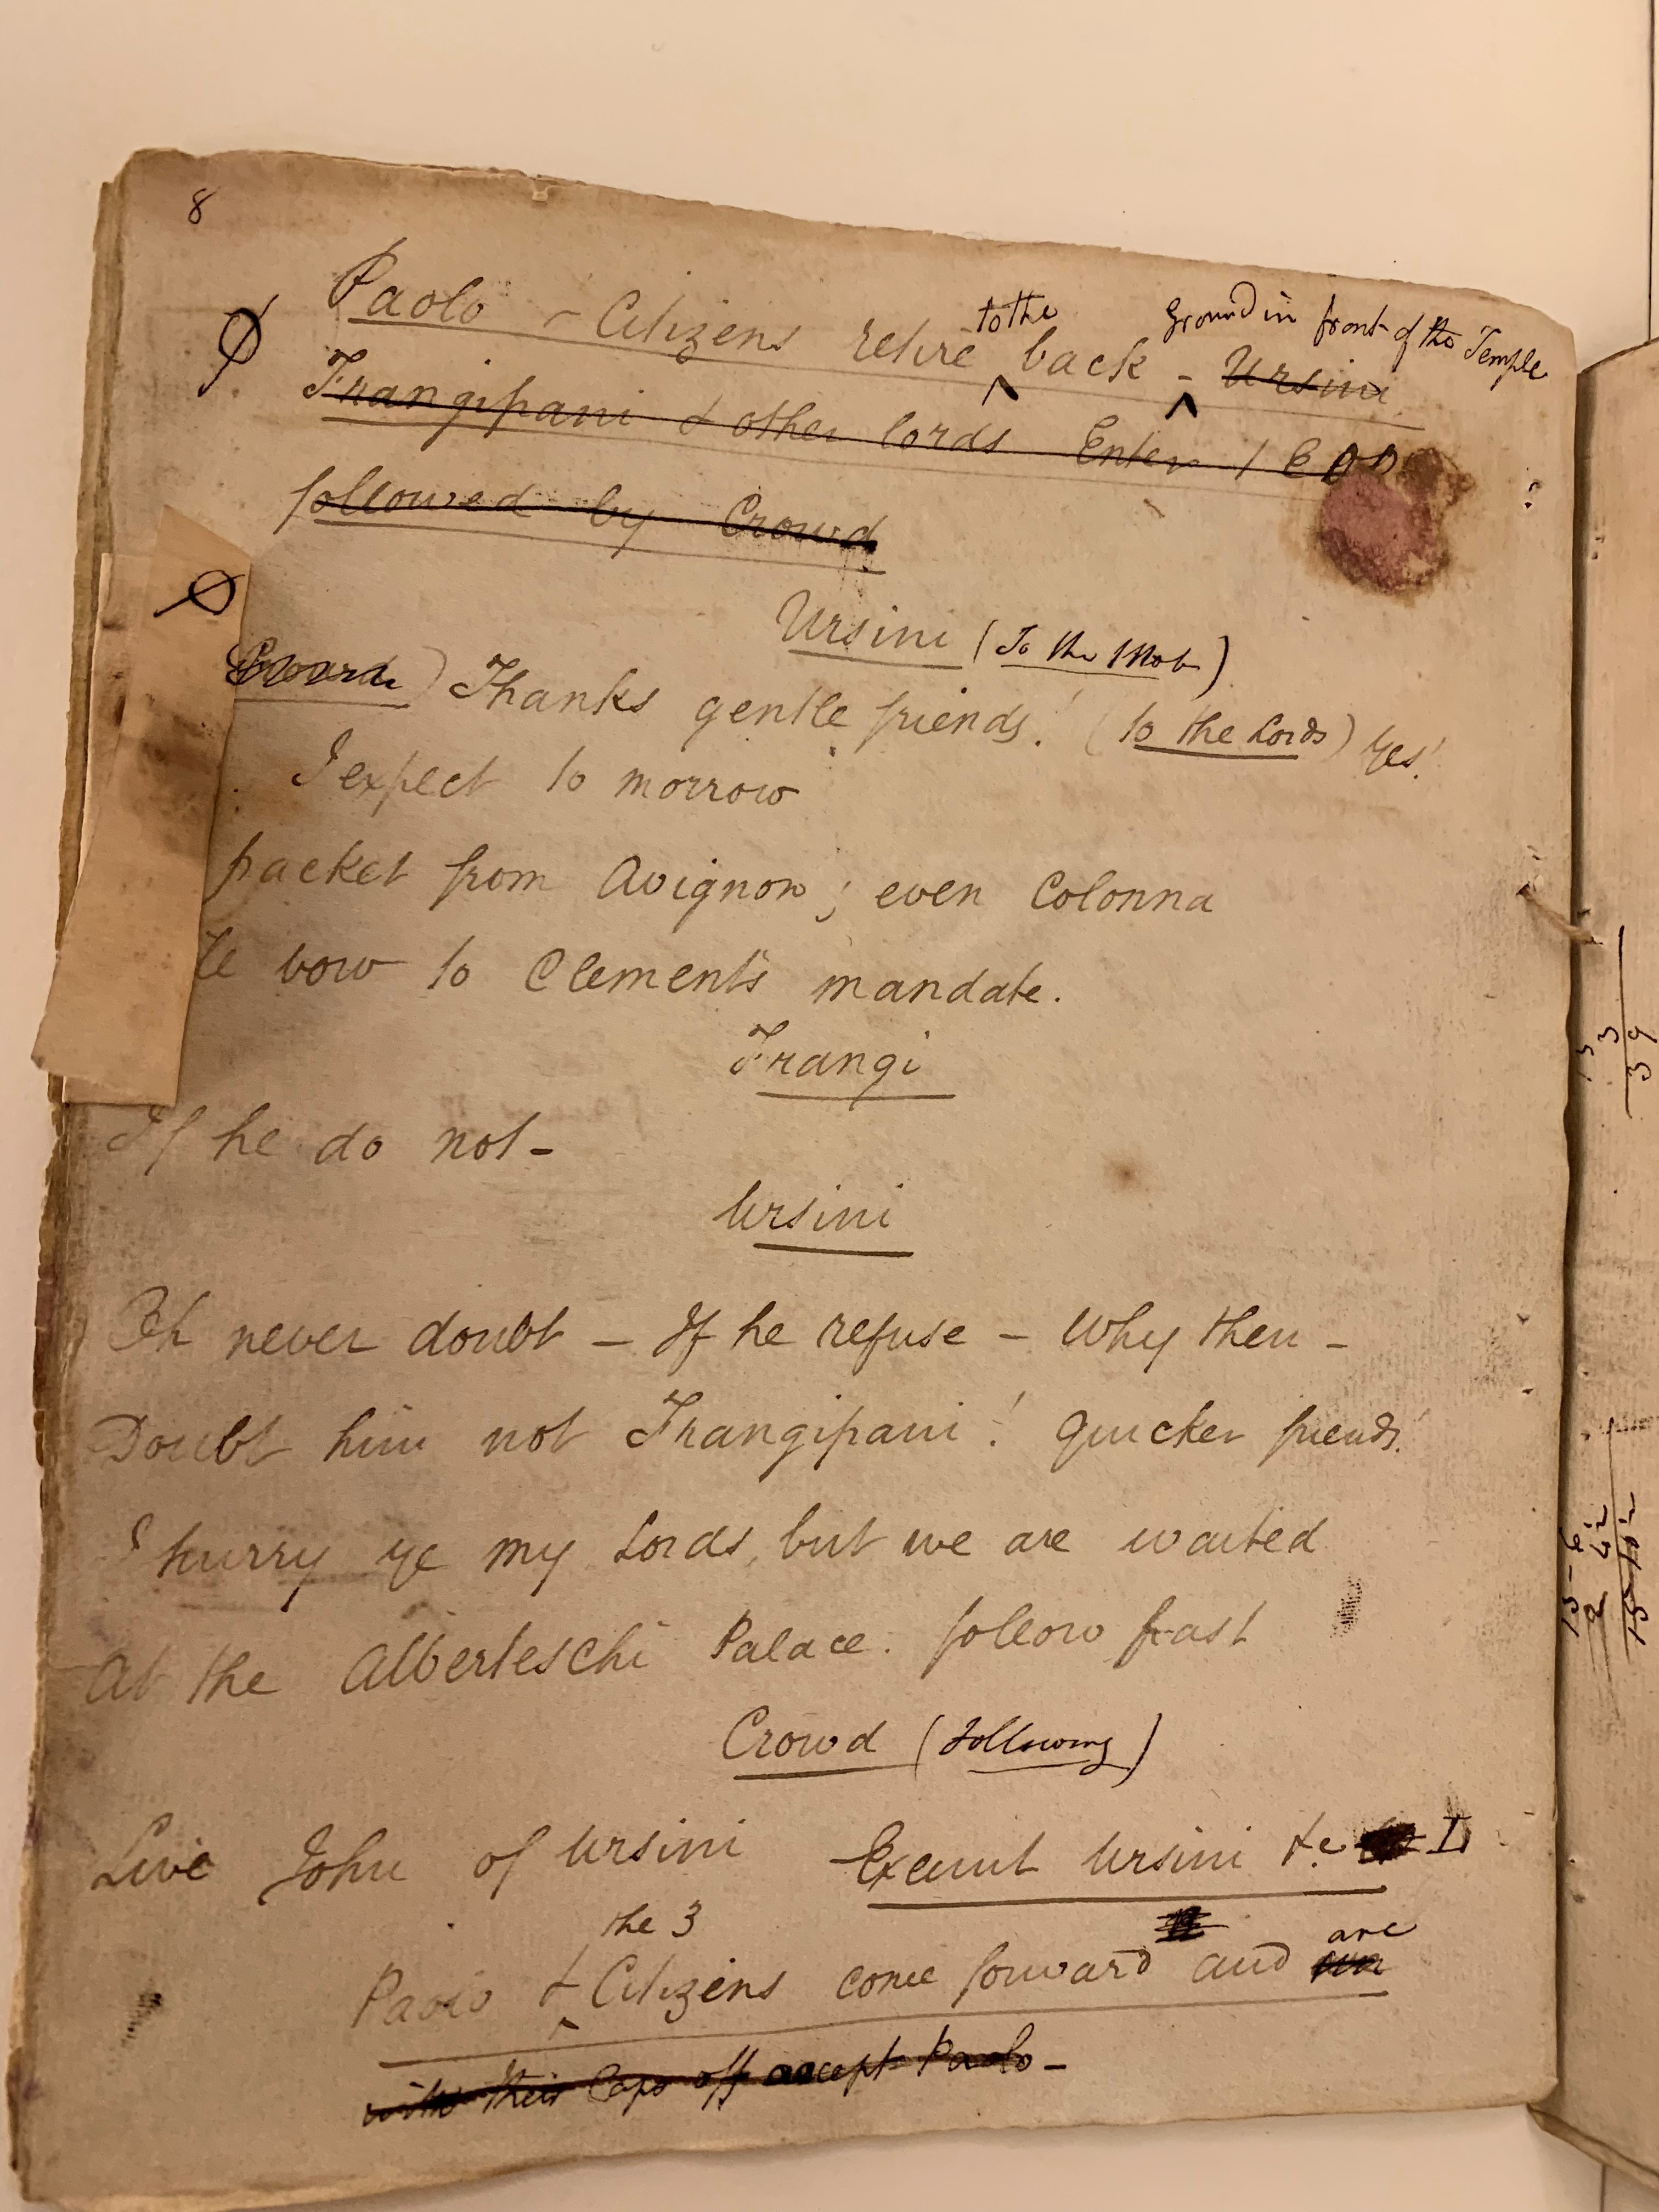 8
to the ground in front of the Temple
Paolo - Citizens retire back - Ursini
Frangipani & other lords Enter
followed by Crowd
Ursini (To the Mob)
) Thanks gentle friends! (to the Lords) Yes!
I expect to morrow
packet from Avignon; even Colonna
bow to Clement's mandate.
Frangi
If he do not -
Ursini
Oh never doubt - If he refuse - Why then -
Doubt him not Frangipani! Quicker friends!
I hurry ye my Lords, but we are waited
At the Alberteschi Palace. follow fast
Crowd (following)
Live John of Ursini Exeunt Ursini &c
the 3 are
Paolo & Citizens come forward and
with their Caps off except Paolo -
13
3
39